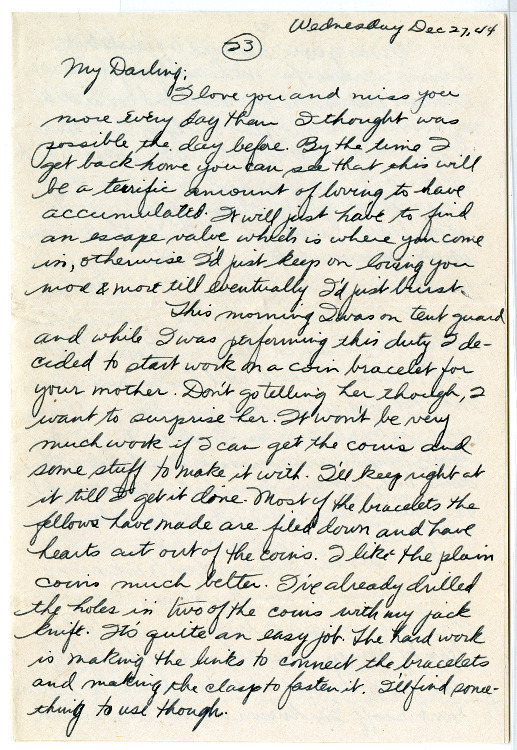 Wednesday Dec 27, 44
23
My Darling;
I love you and miss you
more every day than I thought was
possible the day before. By the time I
get back home you can see that this will
be a terrific amount of loving to have
accumulated. It will just have to find
an escape valve which is where you come
in, otherwise I'd just keep on loving you
more & more till eventually I'd just burst.
This morning I was on tent guard
and while I was performing this duty I de-
cided to start work on a coin bracelet for
your mother. Don't go telling her though, I
want to surprise her. It won't be very
much work if I can get the coins and
some stuff to make it with. I'll keep right at
it till I get it done. Most of the bracelets the
fellows have made are filed down and have
hearts cut out of the coins. I like the plain
coins much better. I've already drilled
the holes in two of the coins with my jack
knife. It's quite an easy job. The hard work
is making the links to connect the bracelets
and making the clasp to fasten it. I'll find some-
thing to use though.